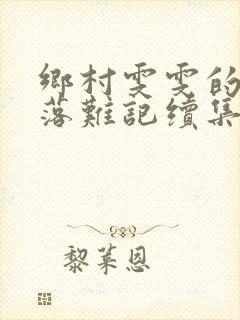 鄉村雯雯的
落難記續集
黎萊恩